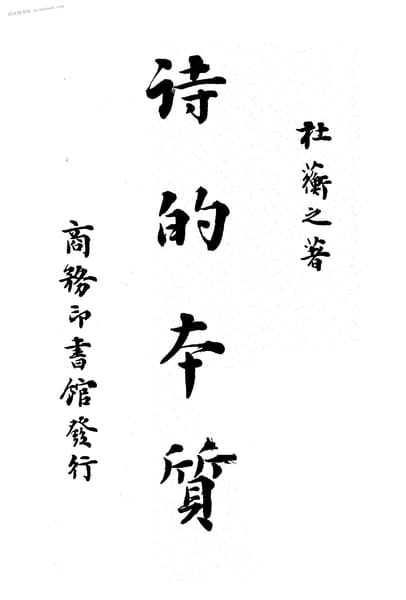 杜蘅之著
诗的本質
商務印書館發行